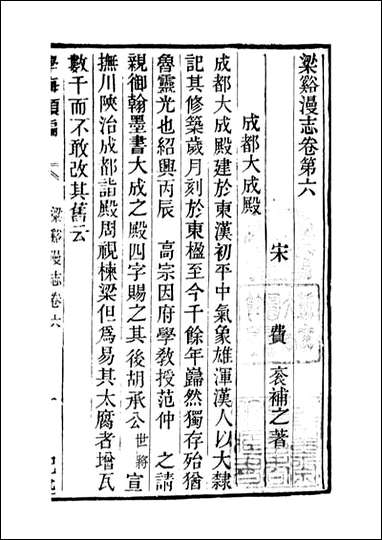 梁谿漫志卷第六
宋 費 袞補之著
成都大成殿
成都大成殿建於東漢初平中氣象雄渾漢人以大隸
記其修築歲月刻於東楹至今千餘年巋然獨存殆猶
魯靈光也紹興丙辰 高宗因府學教授范仲 之請
親御翰墨書大成之殿四字賜之其後胡承公世將宣
撫川陝治成都詣殿周視棟梁但爲易其太腐者增瓦
數千而不敢改其舊云
學海類編
梁谿漫志卷六
一